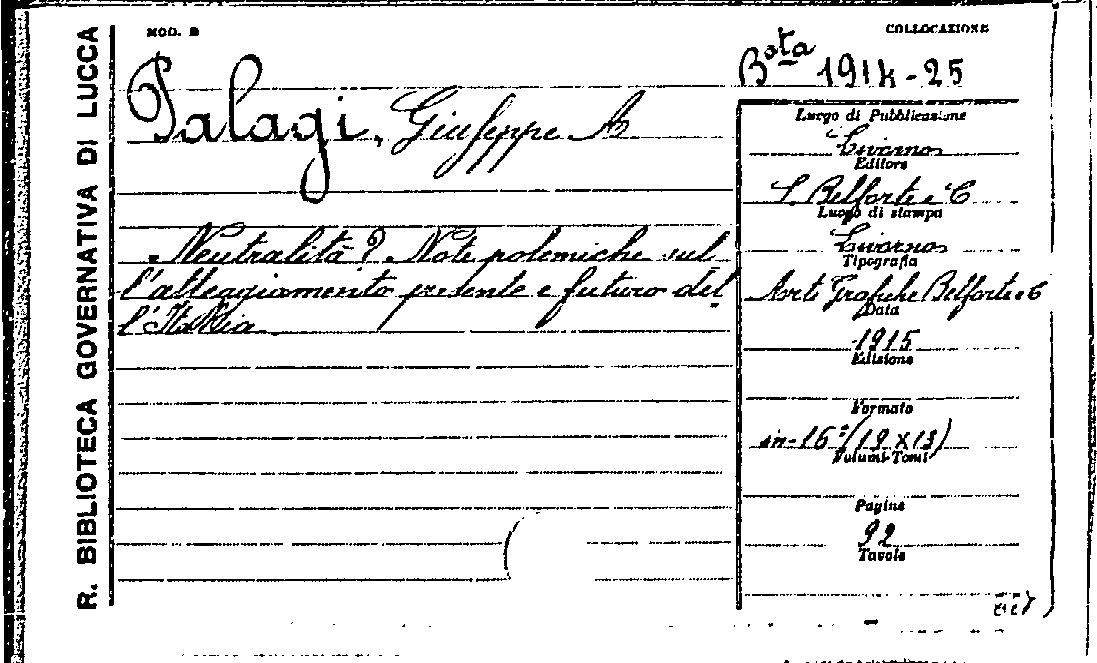 R. BIBLIOTECA GOVERNATIVA DI LUCCA
MOD. B
COLLOCAZIONE
Bsta 1914-25
Palagi, Giuseppe A.
Neutralità? Note polemiche sul
l'atteggiamento presente e futuro del
l'Italia
Luogo di Pubblicazione
Livorno
Editore
S. Belforte e C
Luogo di stampa
Livorno
Tipografia
Arti Grafiche Belforte e C
Data
1915
Edizione
Formato
in-16° (19 x 13)
Volumi-Tomi
Pagine
92
Tavole